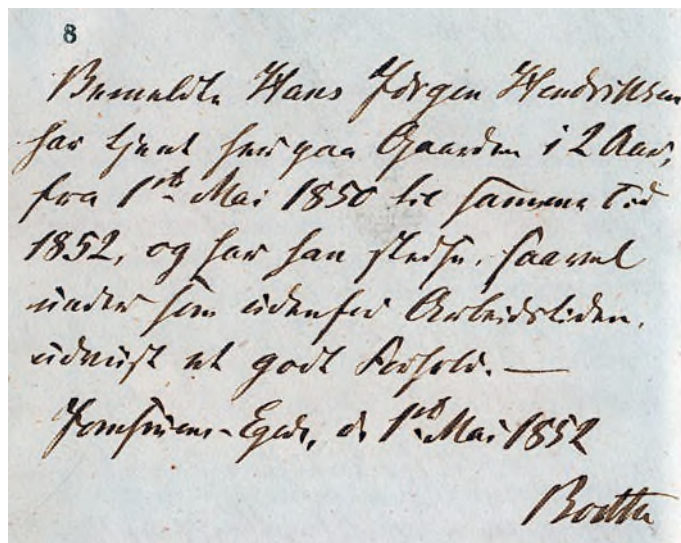 8
Bemeldte Hans Jörgen Hendriksen
har tjent her paa Gaarden i 2 Aar,
fra 1ste Mai 1850 til samme Tid
1852, og har han stedse, saavel
under som udenfor Arbeidstiden,
udvist et godt Forhold. —
Jomfruens-Egede, d. 1ste Mai 1852